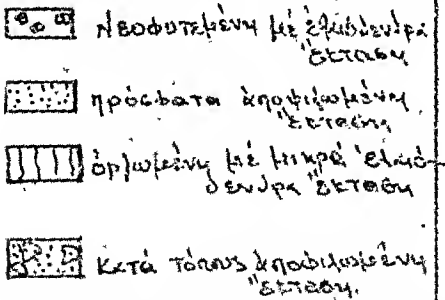 Νεοφυτεμένη μέ ἐλαιόδενδρα
ἔκταση
πρόσφατα ἀποψιλωμένη
ἔκτασις
ὀργωμένη μέ μικρά ἐλαιό-
δενδρα ἔκταση
κατά τόπους ἀποψιλωμένη
ἔκταση.